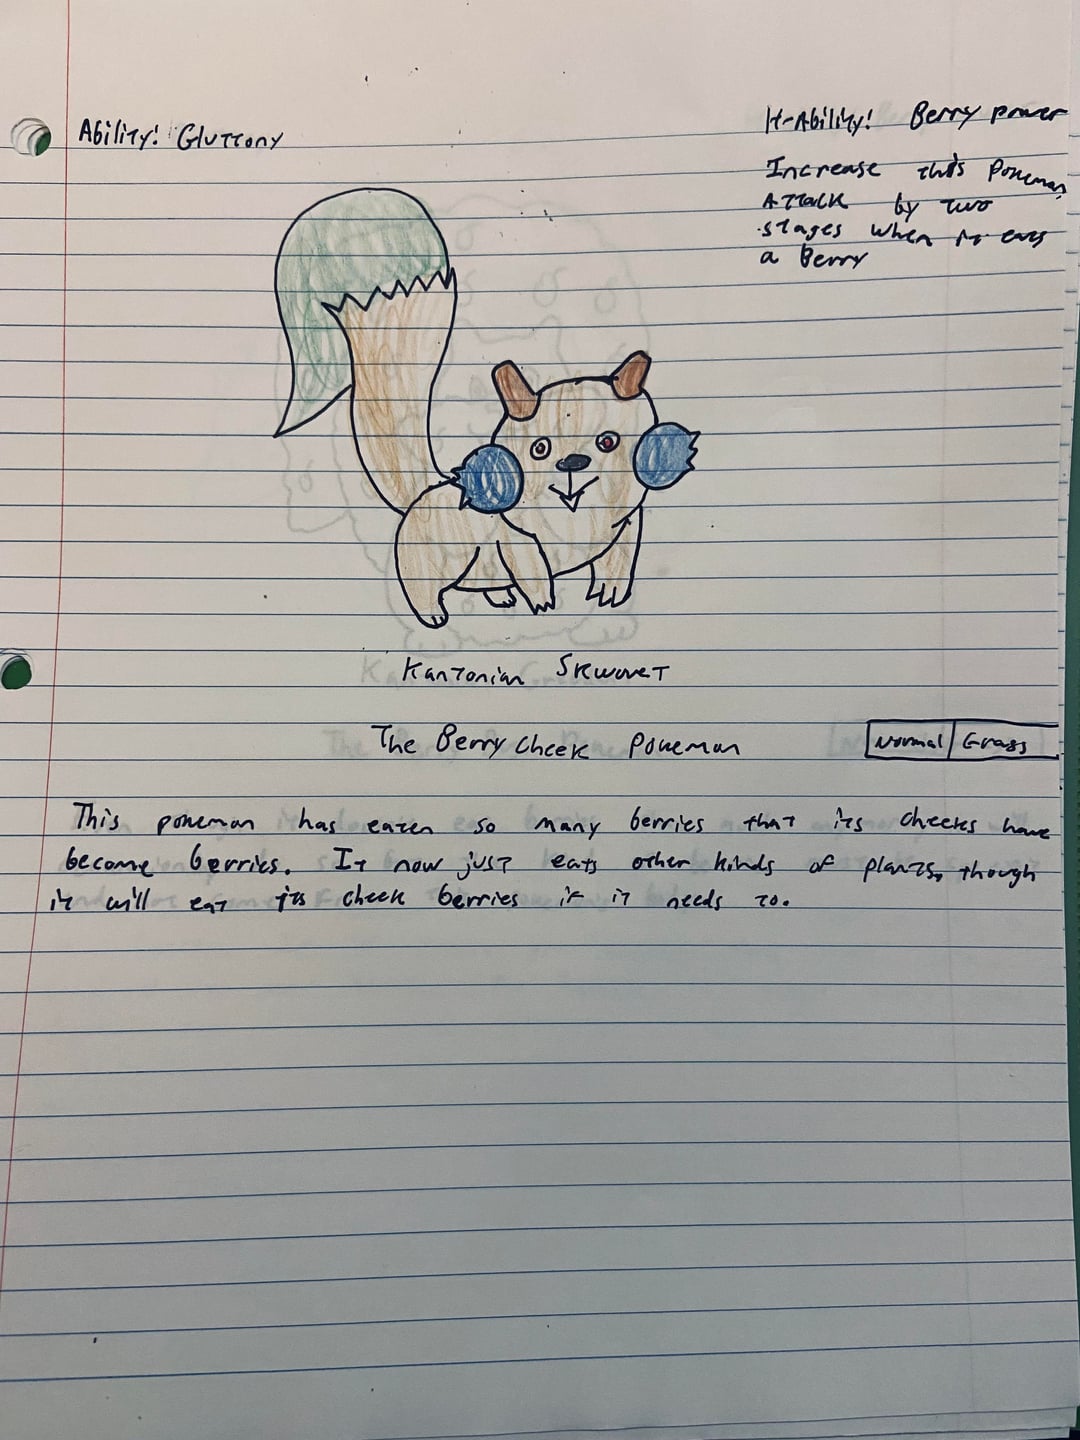 Ability! Gluttony
H-Ability! Berry power
Increase this Pokemon
Attack by two
stages when it eats
a Berry
Kantonian Skwovet
The Berry Cheek Pokemon
Normal Grass
This pokemon has eaten so many berries that its cheeks have
become berries. It now just eats other kinds of plants, though
it will eat its cheek berries if it needs to.